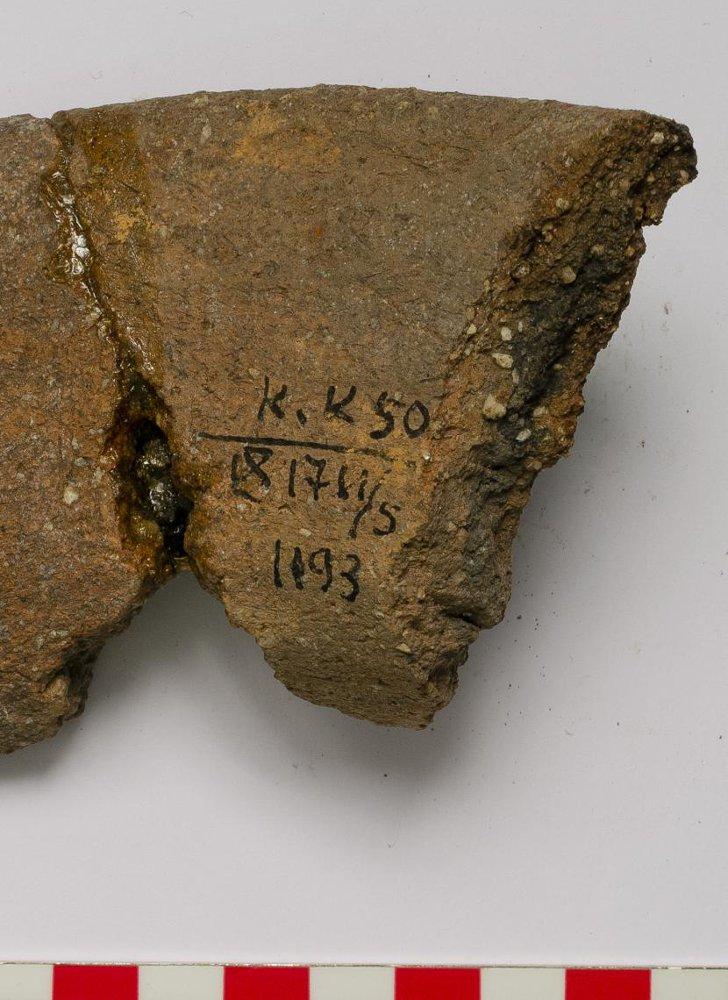 K. K 50
18 1711/5
1193